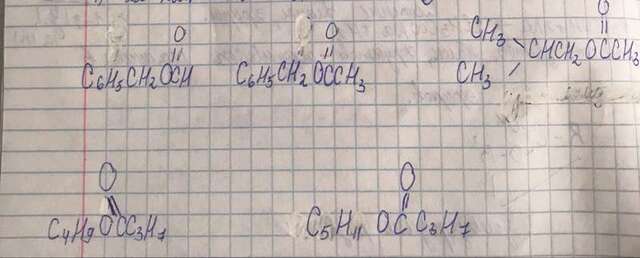 O O O
C₆H₅CH₂OCH C₆H₅CH₂OCCH₃ CH₃ CHCH₂OCCH₃
CH₃
O O
C₄H₉OCC₃H₇ C₅H₁₁ OCC₃H₇